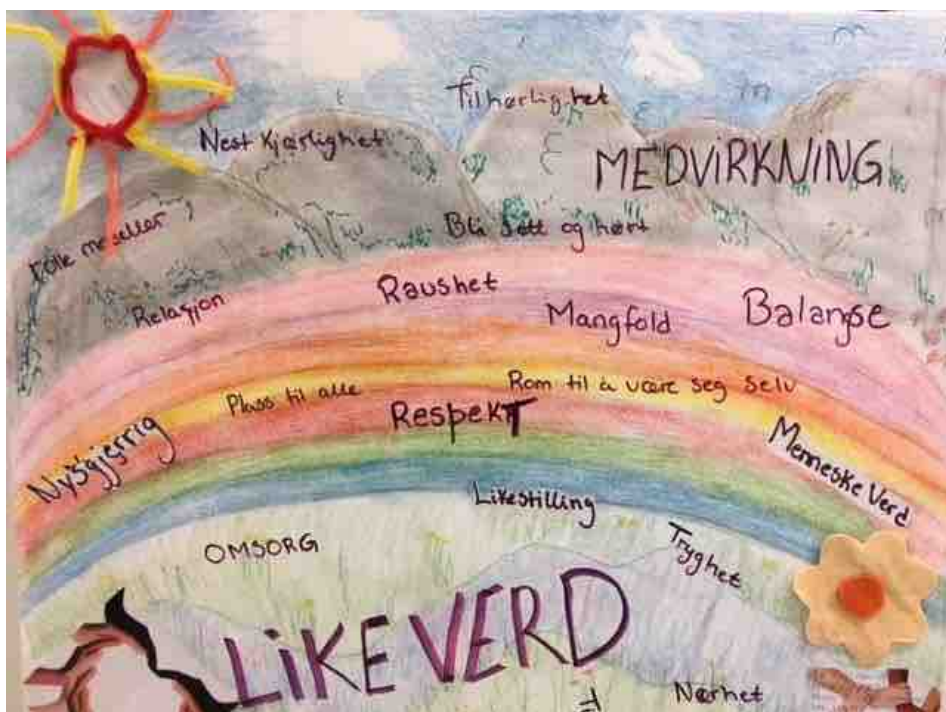 Tilhørlighet
Nest Kjærlighet
MEDVIRKNING
Bli sett og hørt
Relasjon
Raushet
Mangfold
Balanse
Plass til alle
Rom til å være seg selv
Respekt
Nysgjerrig
Menneske Verd
Likestilling
OMSORG
Tryghet
LIKEVERD
Nærhet